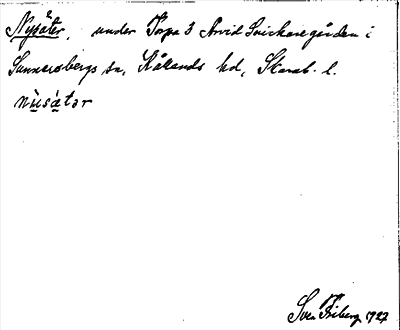 Nysäter, under Torpa 3 Arvid Snickaregården i
Sunnersbergs sn, Kållands hd, Skarab. l.
nùsátər
Sven Friberg 1927